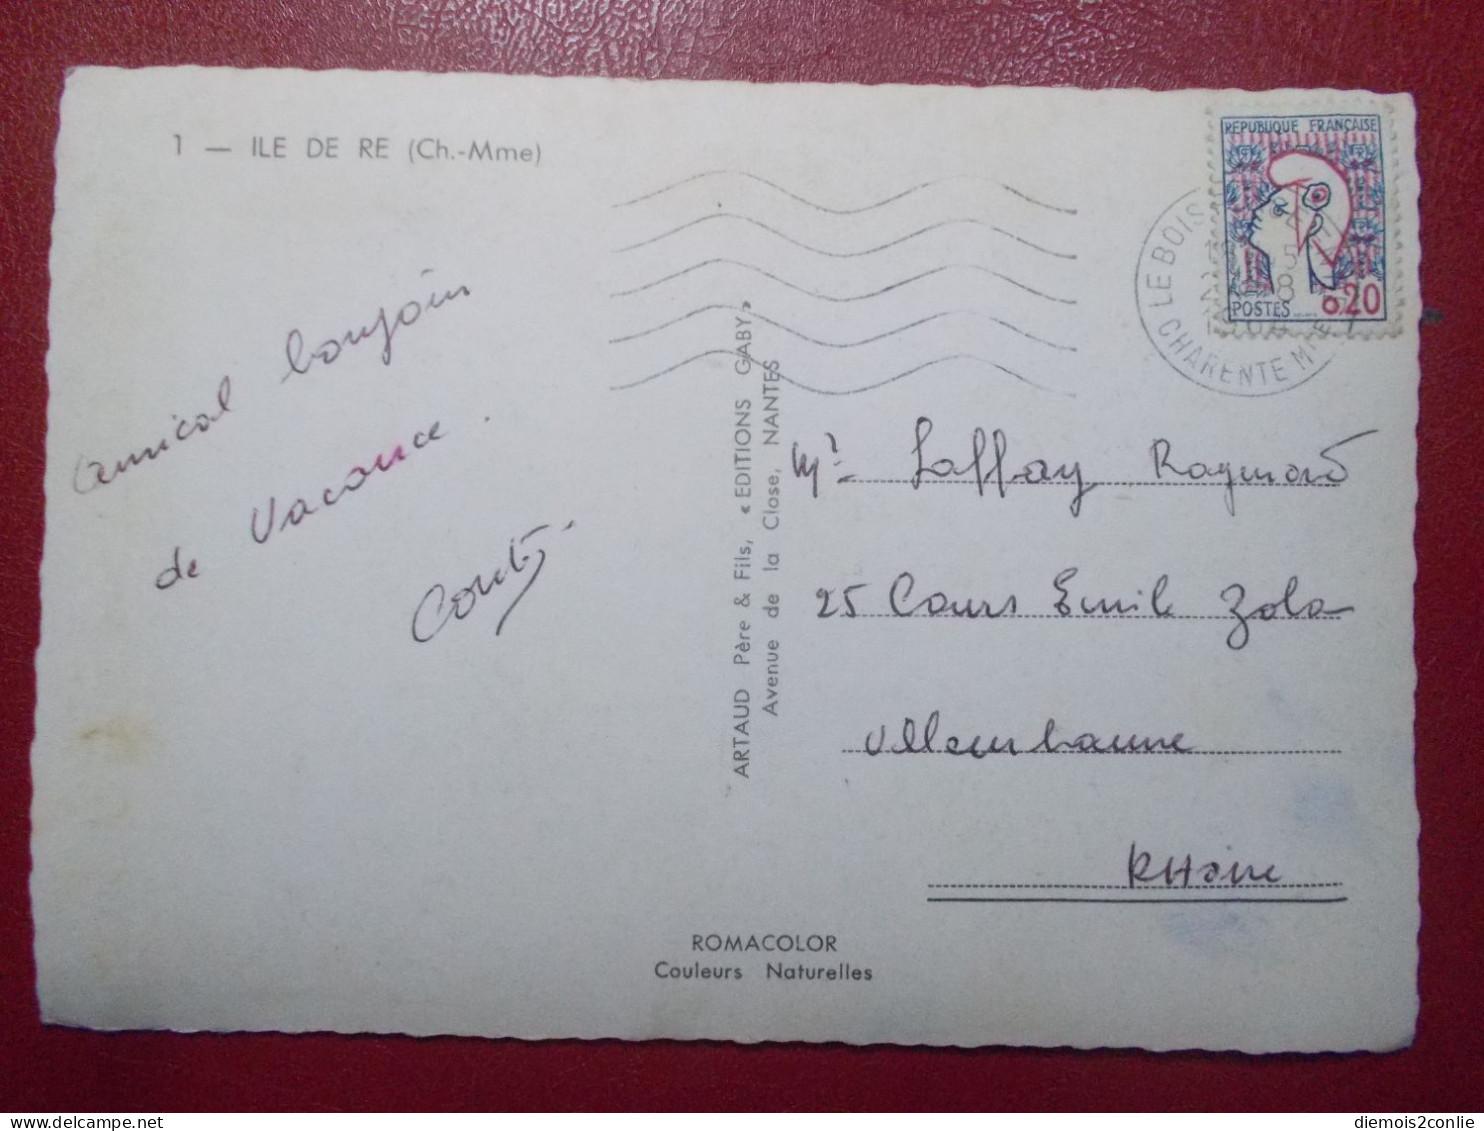 1 — ILE DE RE (Ch.-Mme)
REPUBLIQUE FRANÇAISE
POSTES 0,20
LE BOIS
CHARENTE MME
amical bonjour
de Vacance.
ARTAUD Père & Fils, « EDITIONS GABY »
Avenue de la Close, NANTES
Mr Laffay Raymond
25 Cours Emile Zola
Villeurbanne
RHône
ROMACOLOR
Couleurs Naturelles
diemois2conlie